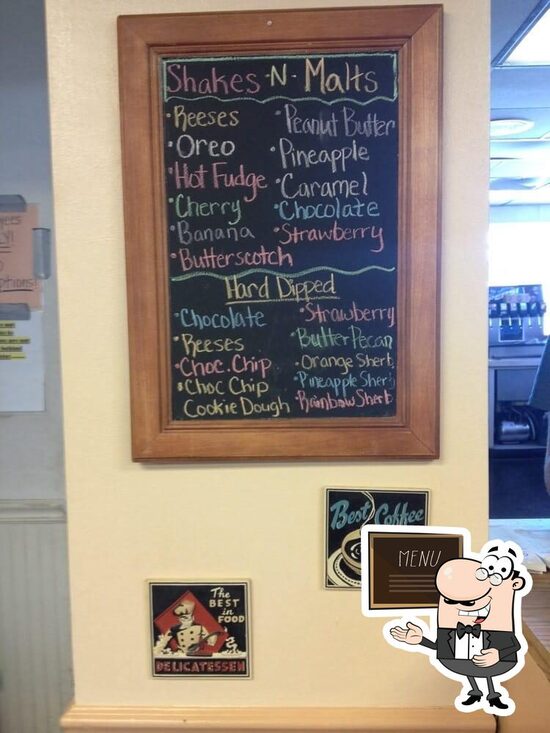 Shakes-N-Malts
Reeses
Oreo
Hot Fudge
Cherry
Banana
Butterscotch
Peanut Butter
Pineapple
Caramel
Chocolate
Strawberry
Hard Dipped
Chocolate
Reeses
Choc. Chip
Choc Chip
Cookie Dough
Strawberry
Butter Pecan
Orange Sherb
Pineapple Sherb
Rainbow Sherb
Best Coffee
MENU
The
BEST
in
FOOD
DELICATESSEN